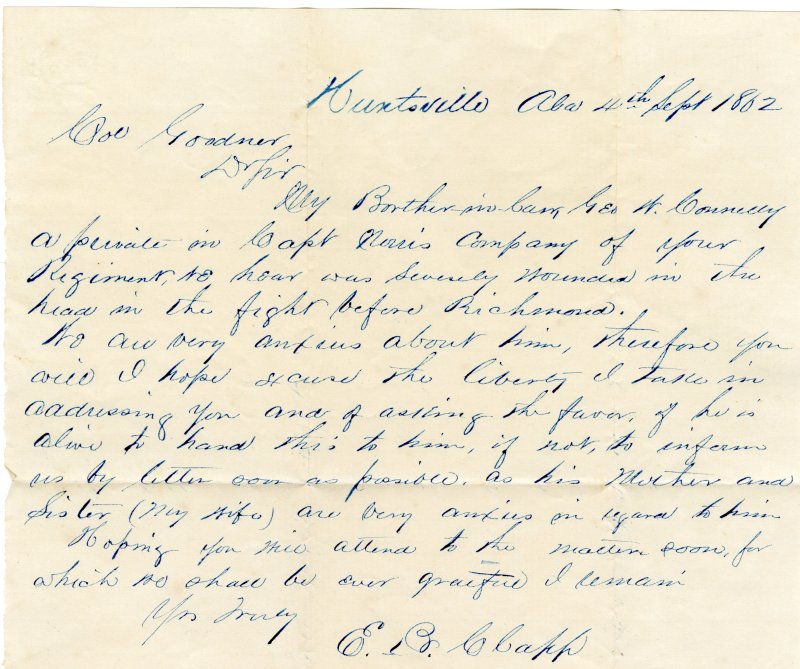 Huntsville Ala 4th Sept 1862
Col Goodner
Dr Sir
My Borther-in-law, Geo W. Connelly
a private in Capt Norris Company of your
Regiment, we hear was severely wounded in the
head in the fight before Richmond.
We are very anxius about him, therefore you
will I hope excuse the liberty I take in
addressing you and of asking the favor, if he is
alive to hand this to him, if not, to inform
us by letter soon as posible. as his Mother and
Sister (My Wife) are very anxius in regard to him
Hoping you will attend to the matter soon, for
which we shall be ever grateful I remain
Yrs Truly
E. B. Clapp